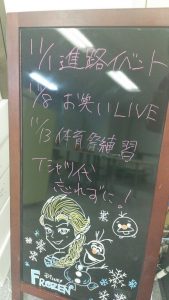 11/1 進路イベント
11/8 お笑いLIVE
11/13 体育祭練習
Tシャツ代
忘れずに!
Disney
FROZEN